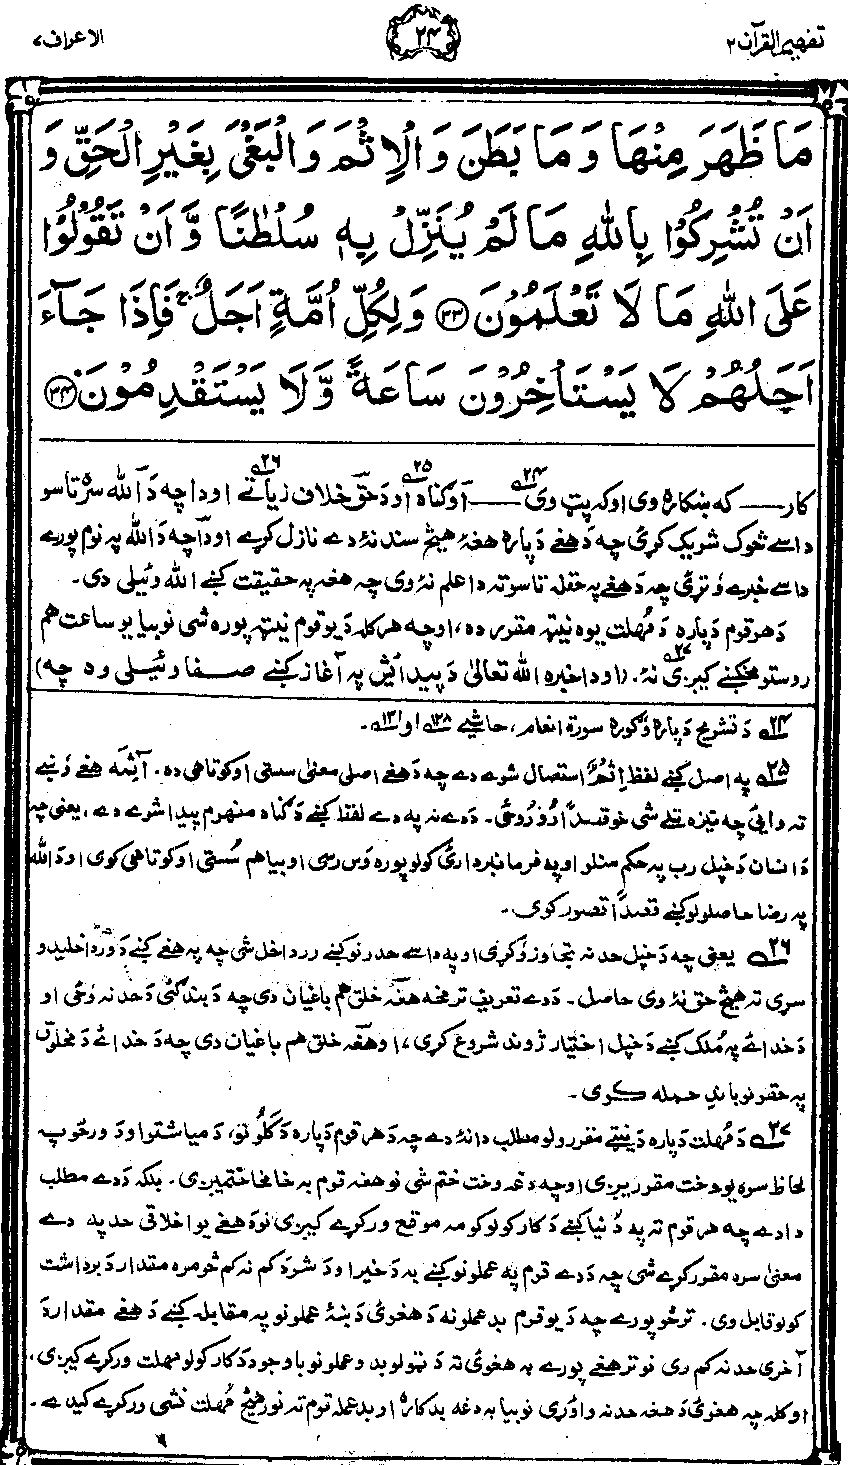 تفهيم القرآن ۲
۲۴
الاعراف ۷
مَا ظَهَرَ مِنْهَا وَ مَا بَطَنَ وَ الْاِثْمَ وَ الْبَغْيَ بِغَيْرِ الْحَقِّ وَ
اَنْ تُشْرِكُوْا بِاللّٰهِ مَا لَمْ يُنَزِّلْ بِهٖ سُلْطٰنًا وَّ اَنْ تَقُوْلُوْا
عَلَى اللّٰهِ مَا لَا تَعْلَمُوْنَ ۝۳۳ وَ لِكُلِّ اُمَّةٍ اَجَلٌ ۚ فَاِذَا جَآءَ
اَجَلُهُمْ لَا يَسْتَاْخِرُوْنَ سَاعَةً وَّ لَا يَسْتَقْدِمُوْنَ ۝۳۴
کار —— که ښکاره وی او که پټ وی ۲۴ —— او ګناه ۲۵ او دَ حق خلاف زیاتے ۲۶ او دا چه دَ الله سره تاسو
داسے څوک شریک کړئ چه دَ هغے دَپاره هغهٔ هیڅ سند نهٔ دے نازل کړے او دا چه دَ الله په نوم پورے
داسے خبرے وتړئ چه دَ هغے په حقله تاسو ته دا علم نهٔ وی چه هغه په حقیقت کښے الله وئیلی دی۔
دَ هر قوم دَپاره دَ مُهلت یوه نیټه مقرره ده، او چه هر کله دَ یو قوم نیټه پوره شی نو بیا یو ساعت هم
روستو مخکښے کیږی نهٔ۔ ۲۷ (او دا خبره الله تعالیٰ دَ پیدائش په آغاز کښے صفا وئیلی وه چه)
۲۴ دَ تشریح دَپاره وګوره سورة انعام، حاشیے ۱۲۸ او ۱۳۱۔
۲۵ په اصل کښے لفظ اِثْمٌ استعمال شوے دے چه دَ هغے اصلی معنیٰ سستی او کوتاهی ده۔ آثِمَه هغے اوښے
ته وایی چه تیزه تللے شی خو قصداً ورو روځی۔ دَ دے نه په دے لفظ کښے دَ ګناه مفهوم پیدا شوے دے، یعنی چه
دَ انسان دَ خپل رب په حکم منلو او په فرمانبرداری کولو پوره وَس رسی او بیا هم سُستی او کوتاهی کوی او دَ الله
په رضا حاصلولو کښے قصداً قصور کوی۔
۲۶ یعنی چه دَ خپل حد نه تجاوز وکړی او په داسے حدونو کښے ورداخل شی چه په هغے کښے دَ ورداخلیدو
سړی ته هیڅ حق نهٔ وی حاصل۔ دَ دے تعریف ترمخه هغه خلق هم باغیان دی چه دَ بندګئ دَ حد نه وځی او
دَ خدائے په مُلک کښے دَ خپل اختیار ژوند شروع کړی، او هغه خلق هم باغیان دی چه دَ خدائے دَ مخلوق
په حقونو باندِ حمله کوی۔
۲۷ دَ مُهلت دَپاره دَ نیټے مقررولو مطلب دا نهٔ دے چه دَ هر قوم دَپاره دَ کلُونو، دَ میاشتو او دَ ورځو په
لحاظ سره یو وخت مقرریږی او چه دغه وخت ختم شی نو هغه قوم به خامخا ختمیږی۔ بلکه دَ دے مطلب
دا دے چه هر قوم ته په دُنیا کښے دَ کار کولو کومه موقع ورکړے کیږی نو دَ هغے یو اخلاقی حد په دے
معنیٰ سره مقرر کړے شی چه دَ دے قوم په عملونو کښے به دَ خیر او دَ شر دَ کم نه کم څومره مقدار دَ برداشت
کولو قابل وی۔ تر څو پورے چه دَ یو قوم بد عملونه دَ هغوئ دَ ښهٔ عملونو په مقابله کښے دَ هغے مقدار دَ
آخری حد نه کم وی نو تر هغے پورے به هغوئ ته دَ ټولو بدو عملونو باوجود دَ کار کولو مهلت ورکړے کیږی،
او کله چه هغوئ دَ هغه حد نه واوړی نو بیا به دغه بدکاره او بدعمله قوم ته نور هیڅ مُهلت نشی ورکړے کیدے۔